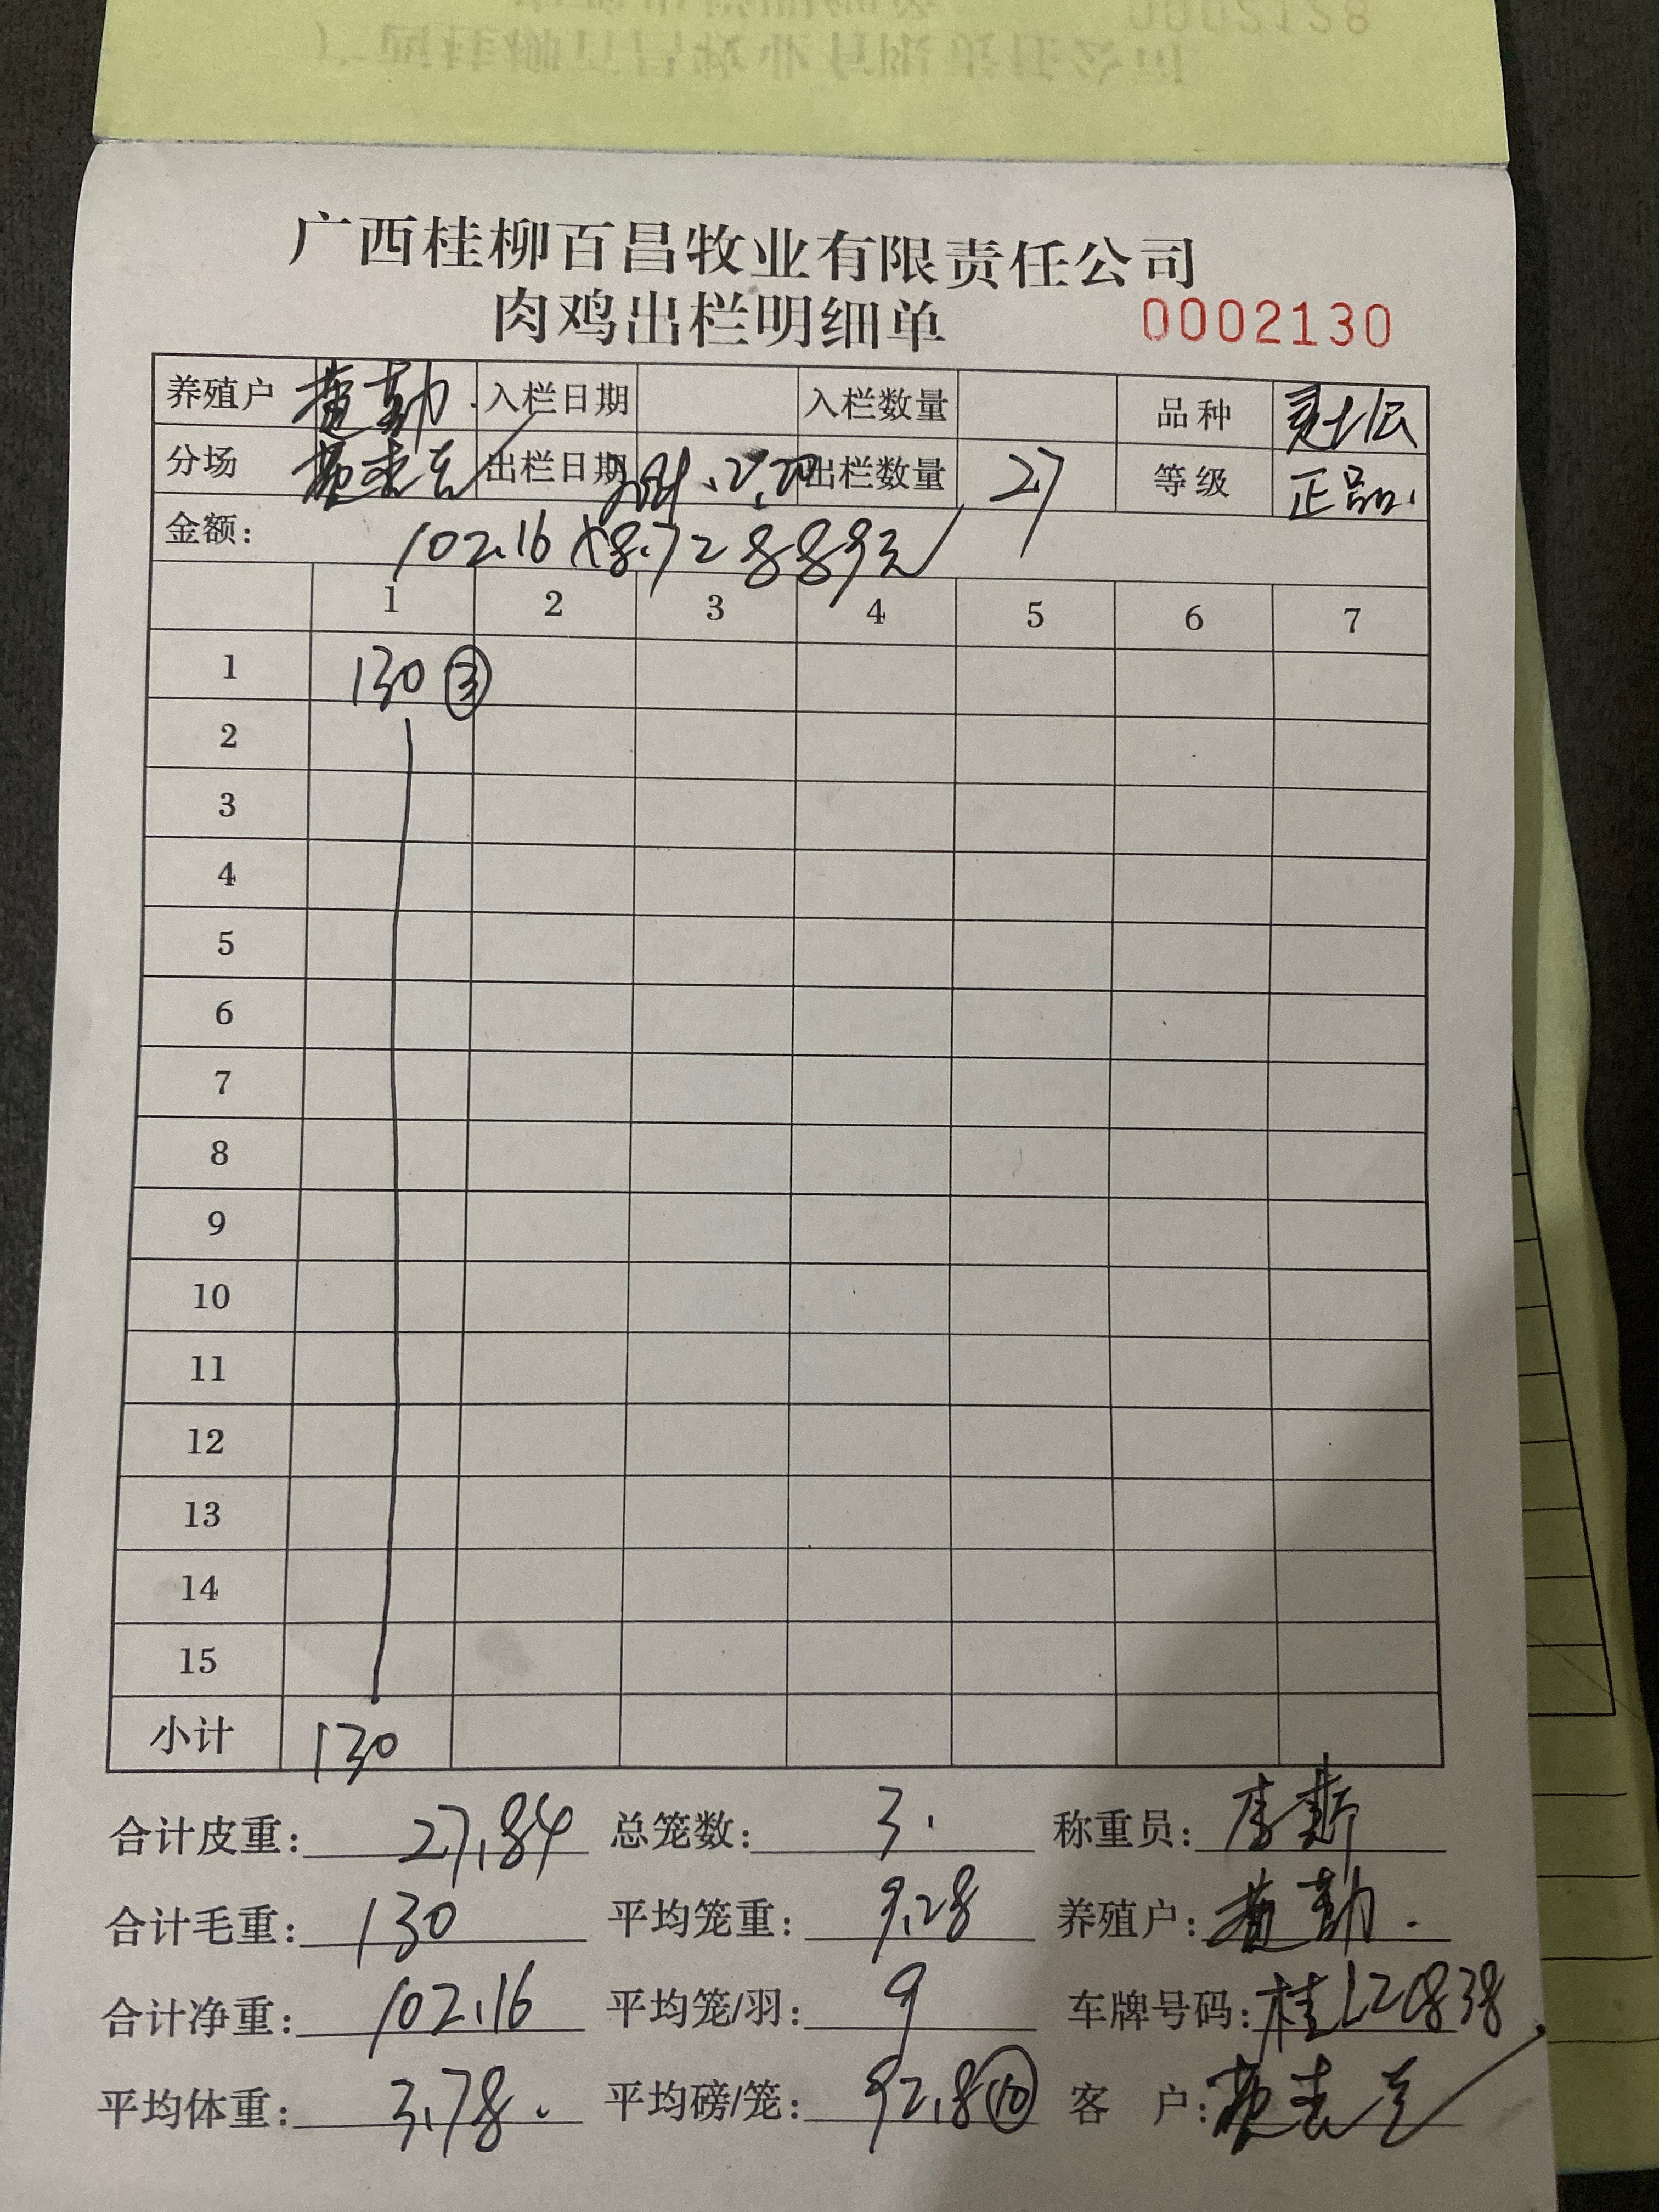 0002128
广西桂柳百昌牧业有限责任公司
广西桂柳百昌牧业有限责任公司
肉鸡出栏明细单 0002130
养殖户 入栏日期 入栏数量 品种
分场 出栏日期 出栏数量 27 等级 正品
金额: 102.16 X8.72 889元
1 2 3 4 5 6 7
1 130 ③
2
3
4
5
6
7
8
9
10
11
12
13
14
15
小计 130
合计皮重: 27.84 总笼数: 3. 称重员:
合计毛重: 130 平均笼重: 9.28 养殖户:
合计净重: 102.16 平均笼/羽: 9 车牌号码: 桂L20838
平均体重: 3.78. 平均磅/笼: 92.8 ⑩ 客 户: